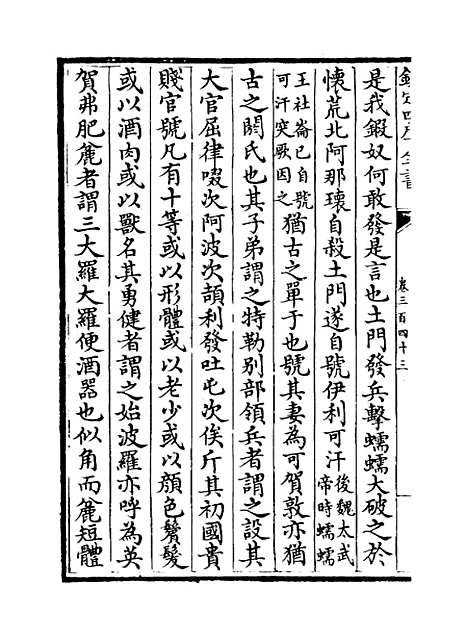 欽定四庫全書
卷三百四十三
是我鍜奴何敢發是言也土門發兵擊蠕蠕大破之於
懷荒北阿那瓌自殺土門遂自號伊利可汗後魏太武帝時蠕蠕
王社崙已自號可汗突厥因之猶古之單于也號其妻為可賀敦亦猶
古之閼氏也其子弟謂之特勒別部領兵者謂之設其
大官屈律啜次阿波次頡利發吐屯次俟斤其初國貴
賤官號凡有十等或以形體或以老少或以顔色鬢髮
或以酒肉或以獸名其勇健者謂之始波羅亦呼為英
賀弗肥麄者謂三大羅大羅便酒器也似角而麄短體